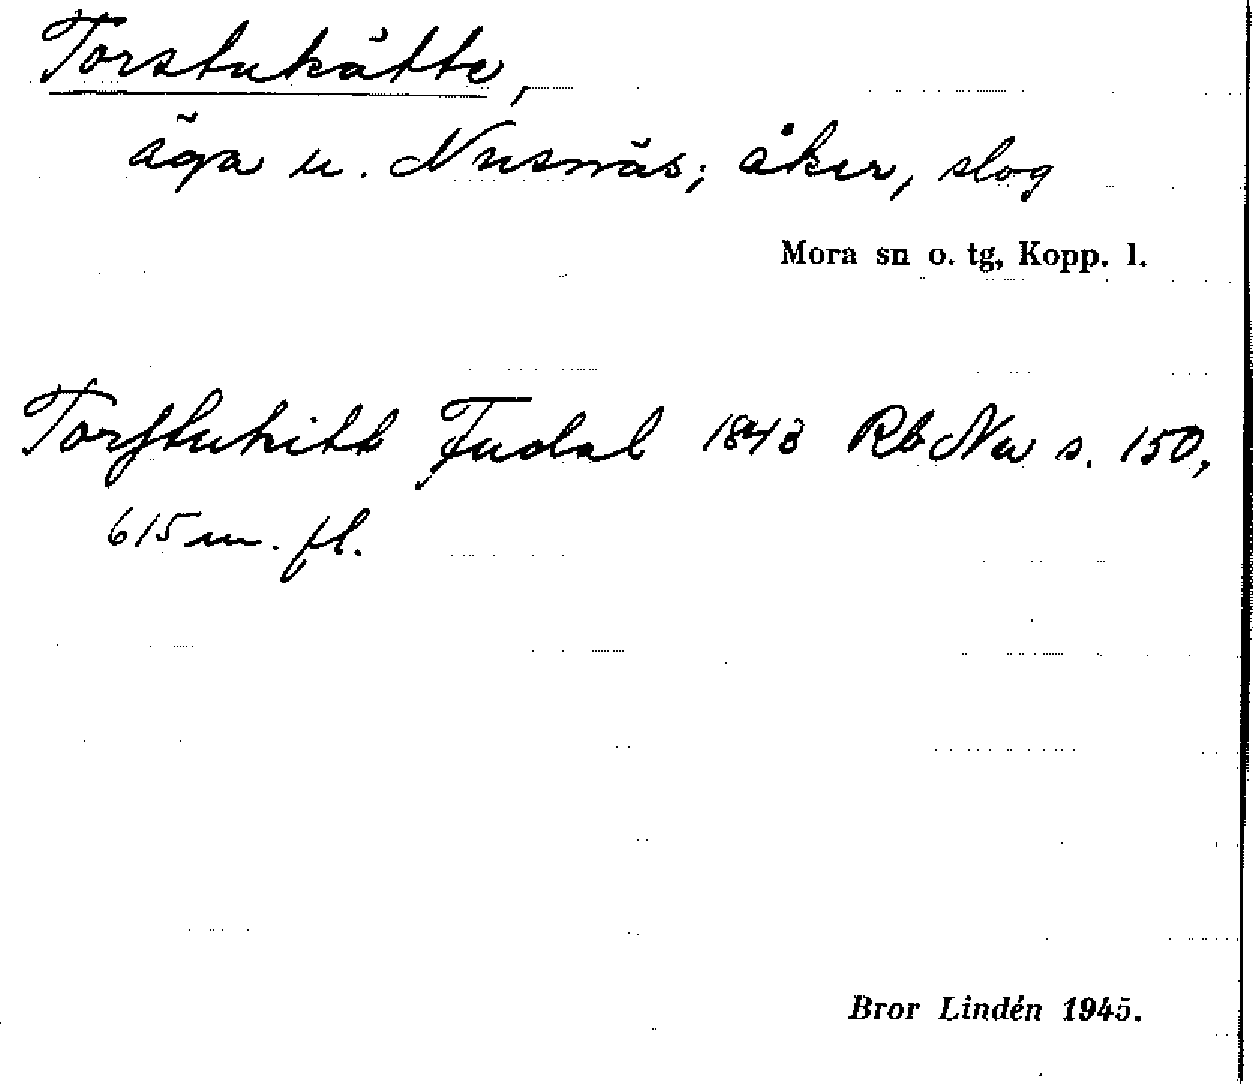 Torstukätte,
äga u. Nusnäs; åker, slog
Mora sn o. tg, Kopp. l.
Torstukitt Fudal 1843 Rb Na s. 150,
615 m. fl.
Bror Lindén 1945.